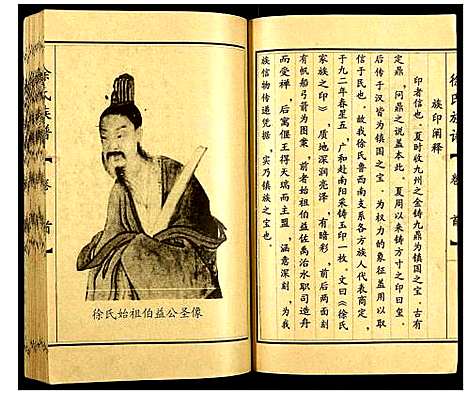 徐氏族谱
卷首
族印阐释
印者信也。夏时收九州之金铸九鼎为镇国之宝。古有
定鼎、问鼎之说盖本此。夏用以来铸方寸之印曰皇。
后传于汉皆为镇国之宝。为权力的象征盖用以取
信于民也。故我徐氏鲁西南支系各方族人代表商定，
于九二年春呈五，广和赴南阳采铸玉印一枚。文曰《徐氏
家族之印》，质地深润亮泽，有暗彩，前后两面刻
有帆船弓箭为图案，前者始祖伯益佐禹治水职司造舟
而受禅，后寓偃王得天瑞而主盟，涵意深刻，为我
族信物传递凭据，实乃镇族之宝也。
徐氏始祖伯益公圣像
徐氏族谱
卷首